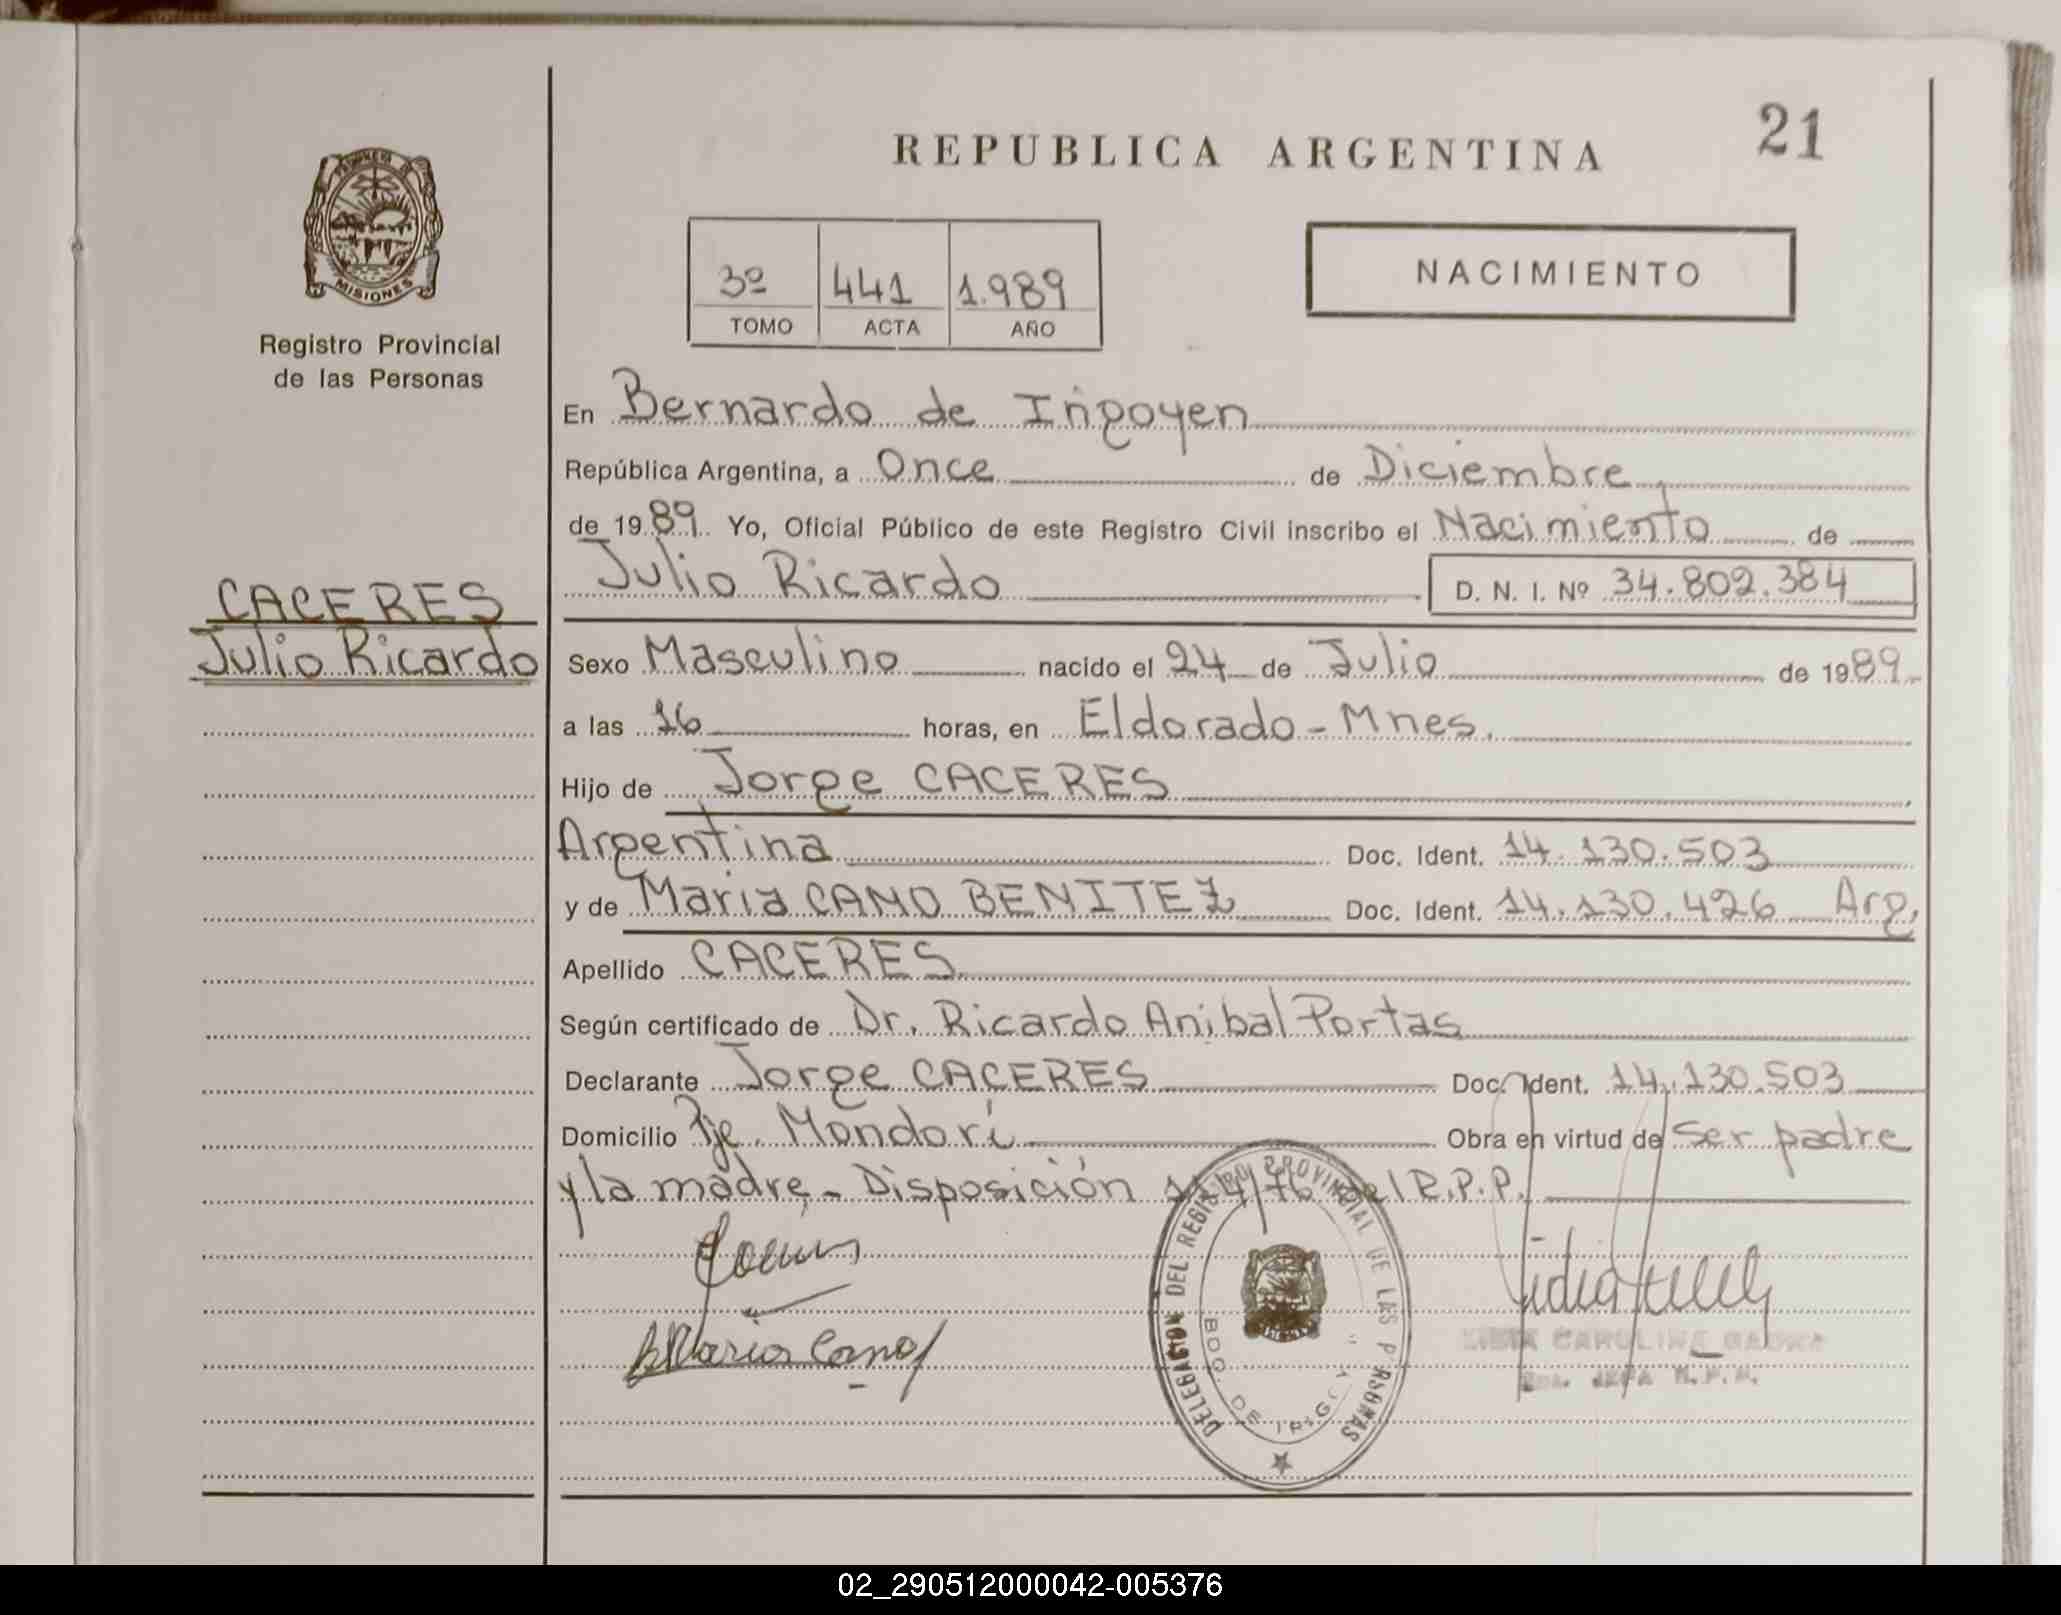 REPUBLICA ARGENTINA
21
MISIONES
Registro Provincial
de las Personas
3º 441 1.989
TOMO ACTA AÑO
NACIMIENTO
En Bernardo de Irigoyen
República Argentina, a Once de Diciembre
de 1989. Yo, Oficial Público de este Registro Civil inscribo el Nacimiento de
Julio Ricardo D. N. I. Nº 34.802.384
CACERES
Julio Ricardo
Sexo Masculino nacido el 24 de Julio de 1989
a las 16 horas, en Eldorado - Mnes.
Hijo de Jorge CACERES
Argentina Doc. Ident. 14.130.503
y de Maria CANO BENITEZ Doc. Ident. 14.130.426 Arg.
Apellido CACERES
Según certificado de Dr. Ricardo Anibal Portas
Declarante Jorge CACERES Doc. Ident. 14.130.503
Domicilio Pje. Mondorí Obra en virtud de ser padre
y la madre - Disposición del R.P.P.
Maria Cano
DELEGACION DEL REGISTRO PROVINCIAL DE LAS PERSONAS
BDO. DE IRIGOYEN
CAROLINE
JEFA R.P.P.
02_290512000042-005376